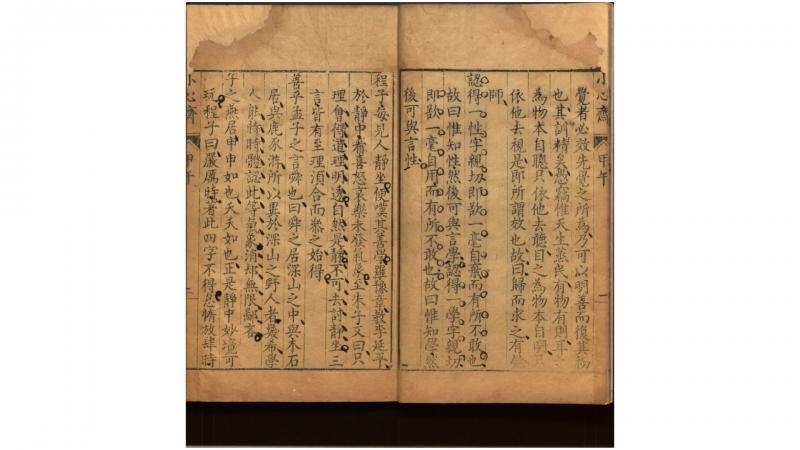 小心齋 甲午 一
覺者必效先覺之所為乃可以明善而復其初
也其訓精矣愚竊惟天生蒸民有物有則耳之
為物本自聰只依他去聽目之為物本自明只
依他去視是即所謂效也故曰歸而求之有餘
師
認得一性字親切即欲一毫自棄而有所不敢也
故曰惟知性然後可與言學認得一學字親切
即欲一毫自用而有所不敢也故曰惟知學然
後可與言性
程子每見人靜坐便嘆其善學羅豫章教李延平
於靜中看喜怒哀樂未發氣象至朱子又曰只
理會得道理明透自然是靜不可去討靜坐三
言皆有至理須合而參之始得
善乎孟子之言舜也曰舜之居深山之中與木石
居與鹿豕游所以異於深山之野人者幾希學
人能時時體認此等氣象消却無限鄙吝
子之燕居申申如也夭夭如也正是靜中妙境可
玩程子曰嚴厲時著此四字不得怠惰放肆時
小心齋 甲午 二